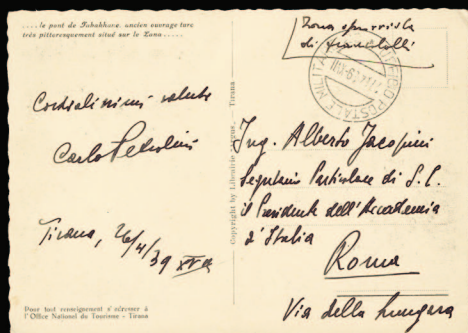 ....le pont de Tabakhane, ancien ouvrage turc
très pittoresquement situé sur le Zana.....
Cordialissimi saluti
Carlo Petrolini
Tirana, 26/4/39 XVII
Pour tout renseignement s'adresser à
l'Office National du Tourisme - Tirana
Copyright by Librairie Argus. - Tirana
Zona sprovvista
di francobolli
POSTALE MILITA
Ing. Alberto Jacopini
Segretario Particolare di S. E.
il Presidente dell'Accademia
d'Italia
Roma
Via della Lungara